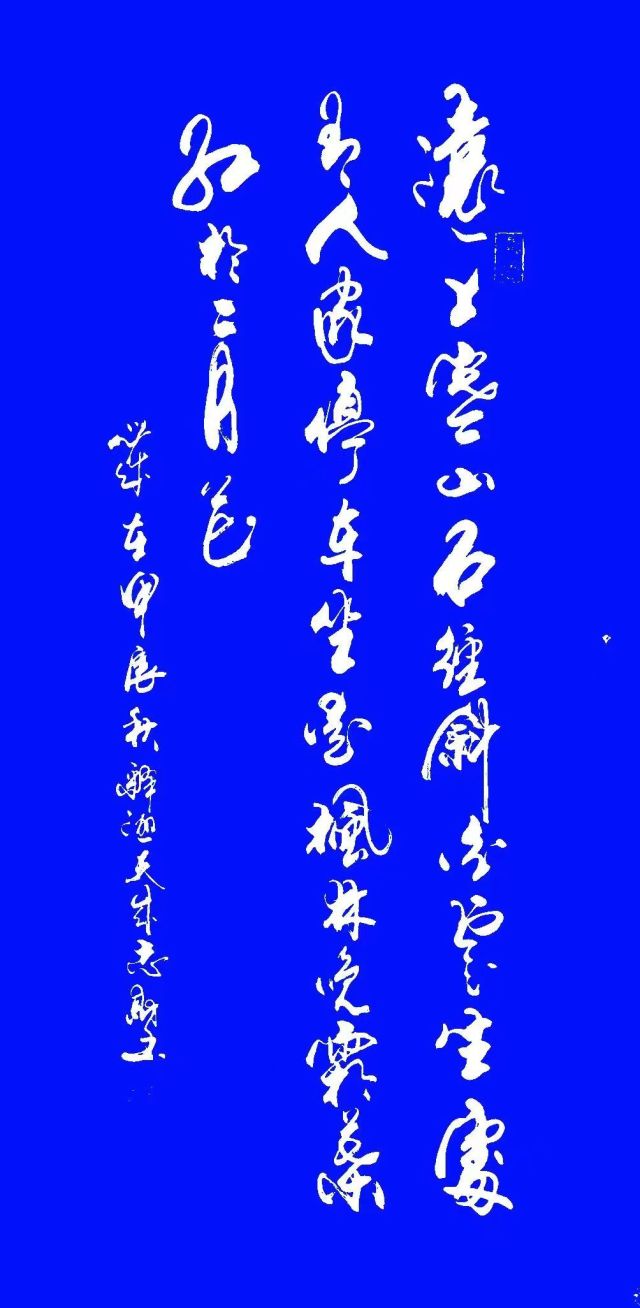 遠上寒山石徑斜白雲生處
有人家停车坐愛楓林晚霜葉
紅於二月花
歲在甲辰秋